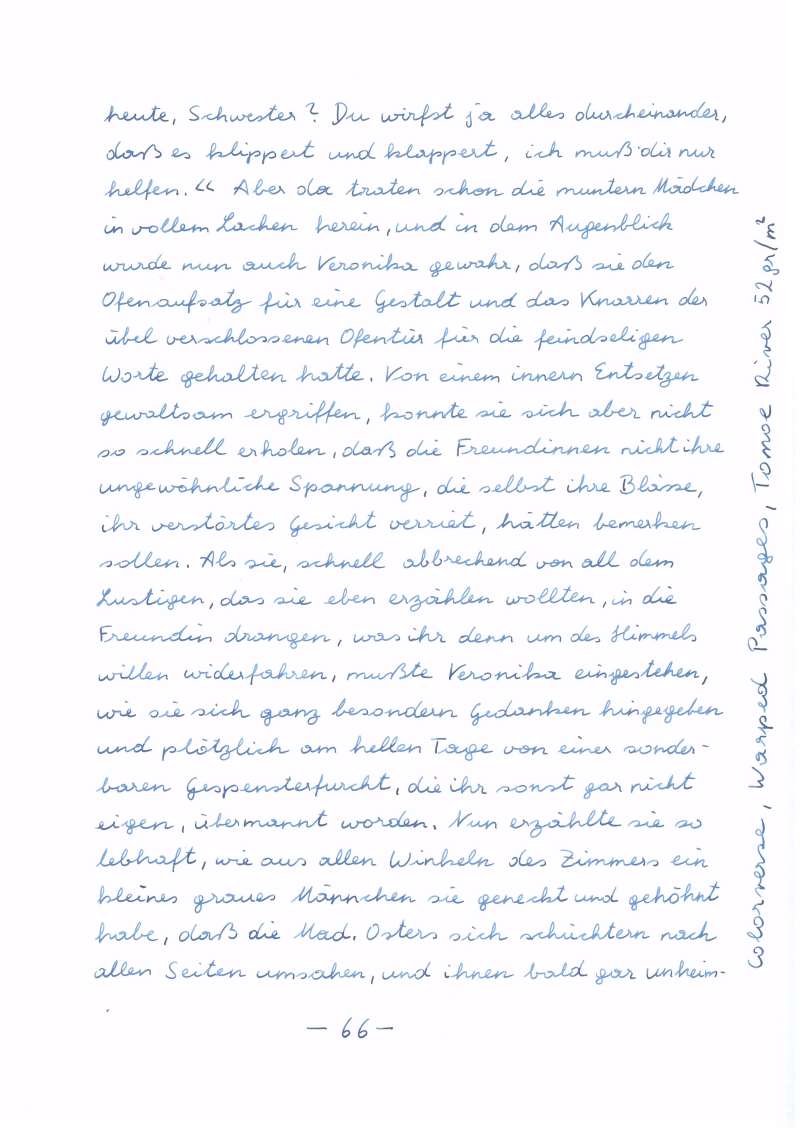 heute, Schwester? Du wirfst ja alles durcheinander,
daß es klippert und klappert, ich muß dir nur
helfen.“ Aber da traten schon die muntern Mädchen
in vollem Lachen herein, und in dem Augenblick
wurde nun auch Veronika gewahr, daß sie den
Ofenaufsatz für eine Gestalt und das Knarren der
übel verschlossenen Ofentür für die feindseligen
Worte gehalten hatte. Von einem innern Entsetzen
gewaltsam ergriffen, konnte sie sich aber nicht
so schnell erholen, daß die Freundinnen nicht ihre
ungewöhnliche Spannung, die selbst ihre Blässe,
ihr verstörtes Gesicht verriet, hätten bemerken
sollen. Als sie, schnell abbrechend von all dem
Lustigen, das sie eben erzählen wollten, in die
Freundin drangen, was ihr denn um des Himmels
willen widerfahren, mußte Veronika eingestehen,
wie sie sich ganz besondern Gedanken hingegeben
und plötzlich am hellen Tage von einer sonder-
baren Gespensterfurcht, die ihr sonst gar nicht
eigen, übermannt worden. Nun erzählte sie so
lebhaft, wie aus allen Winkeln des Zimmers ein
kleines graues Männchen sie geneckt und gehöhnt
habe, daß die Mad. Osters sich schüchtern nach
allen Seiten umsahen, und ihnen bald gar unheim-
— 66 —
Colorverse, Warped Passages, Tomoe River 52gr/m²